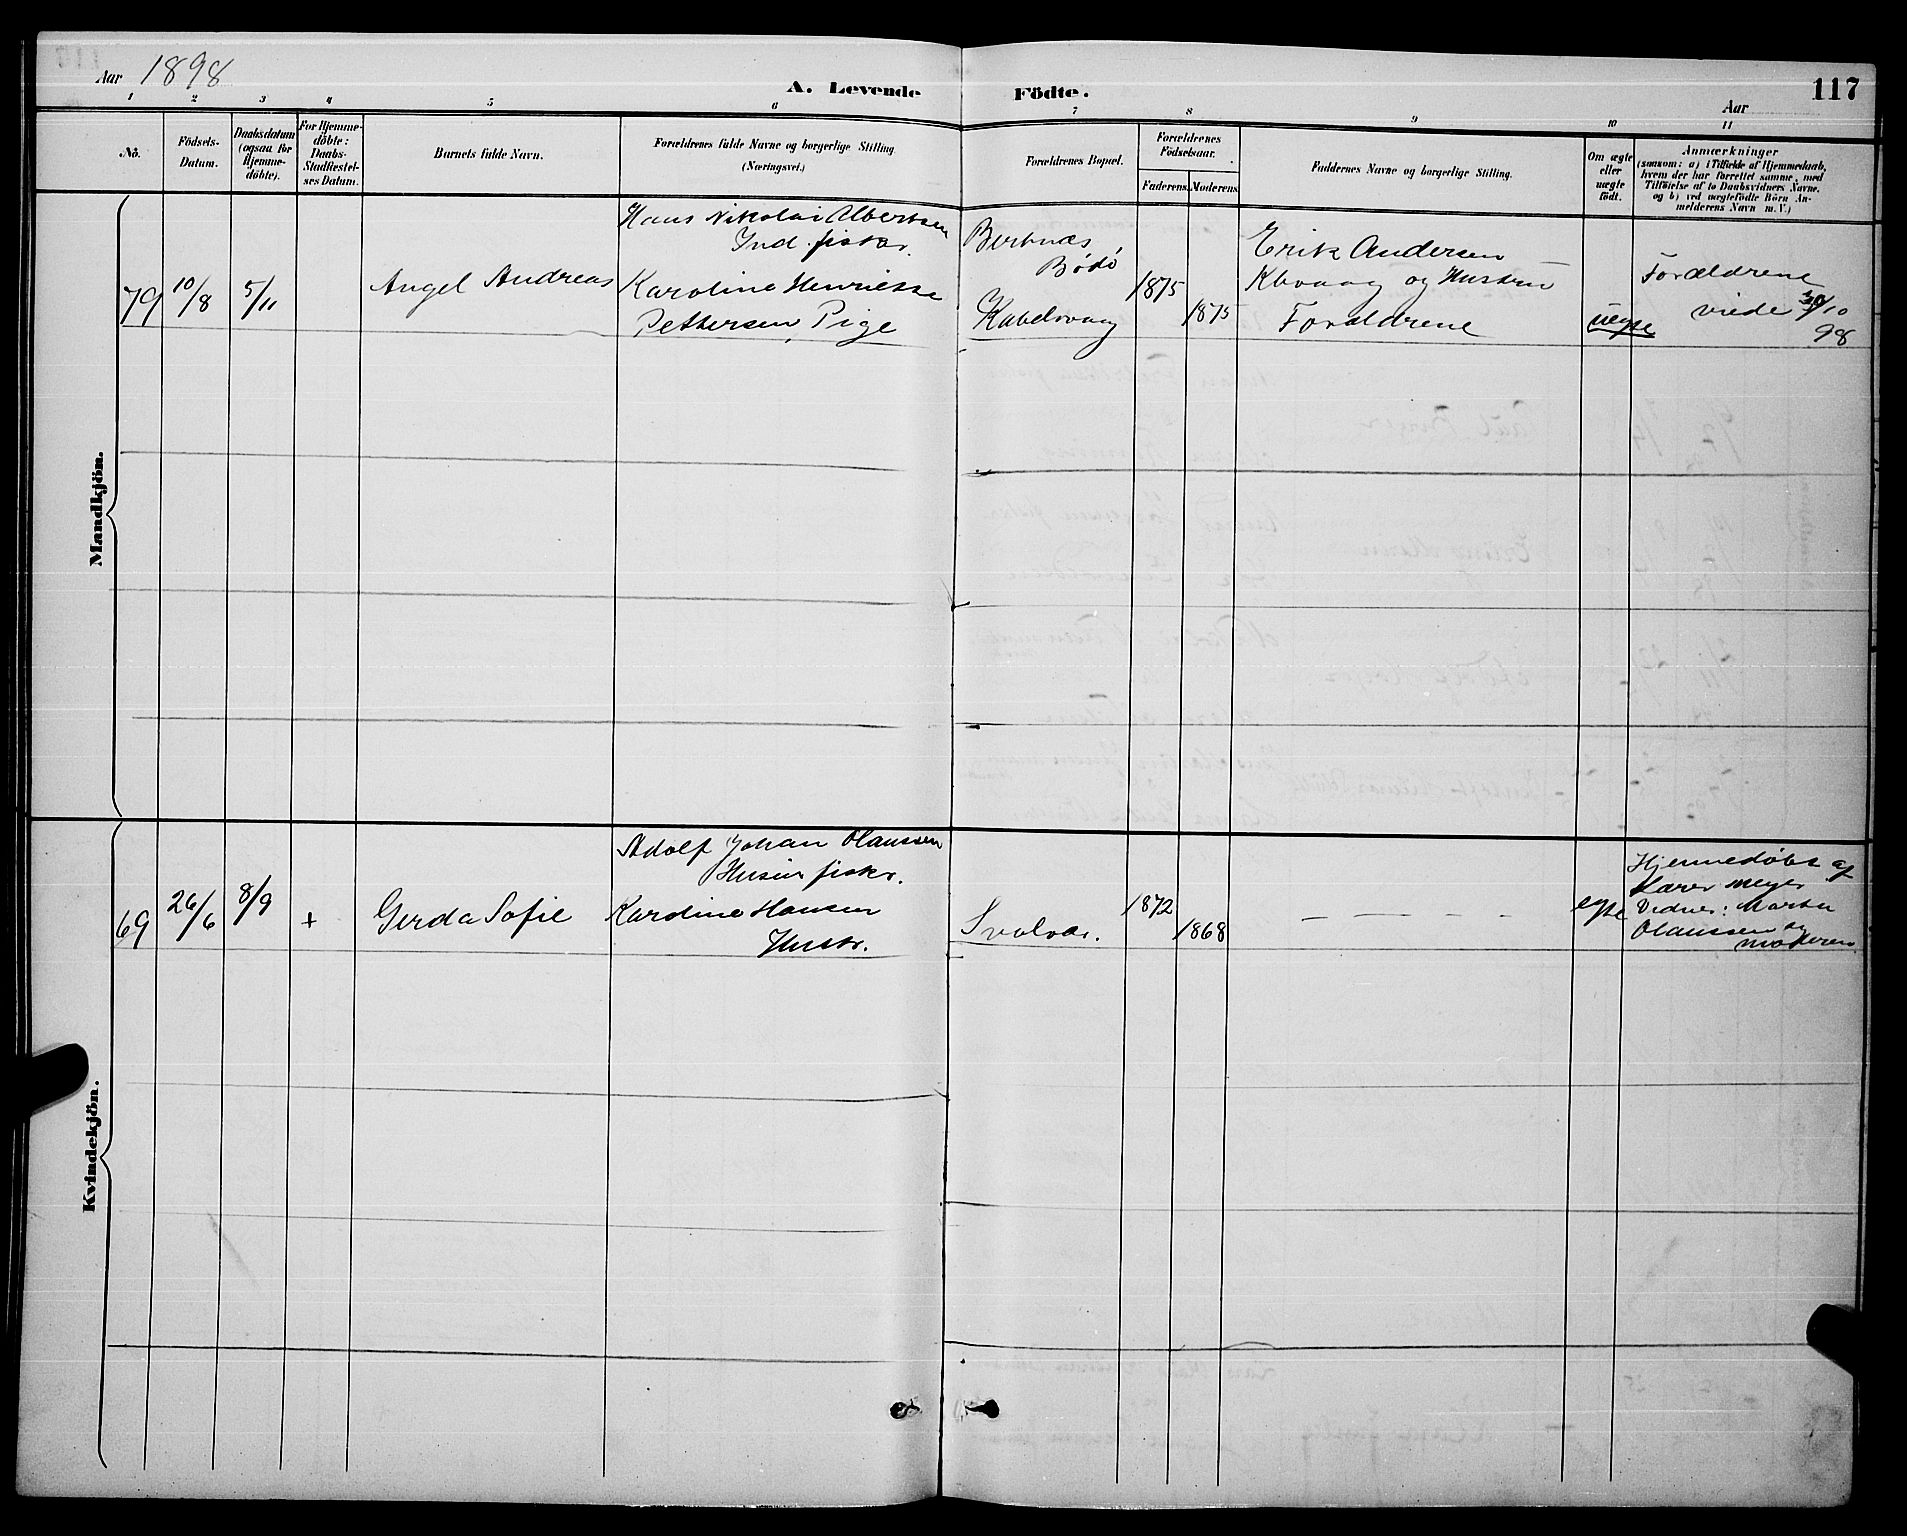 Aar 1898
A. Levende Födte.
Aar
117
1 2 3 4 5 6 7 8 9 10 11
No.
Födsels-
Datum.
Daabsdatum
(ogsaa for
Hjemme-
döbte).
For Hjemme-
döbte:
Daabs-
Stadfæstel-
ses Datum.
Barnets fulde Navn.
Forældrenes fulde Navne og borgerlige Stilling
(Næringsvei.)
Forældrenes Bopæl.
Forældrenes
Födselsaar.
Faderens. Moderens.
Faddernes Navne og borgerlige Stilling.
Om ægte
eller
uægte
födt.
Anmærkninger
(saasom: a) i Tilfælde af Hjemmedaab,
hvem der har forrettet samme, med
Tilföielse af to Daabsvidners Navne.
og b) ved uægtefödte Börn An-
melderens Navn m. V.)
Mandkjön.
79
10/8
5/11
Angel Andreas
Hans Nikolai Albertsen
Ind. fisker.
Karoline Henriette
Pettersen, Pige
Bertnæs,
Bödö
Kabelvaag
1875
1875
Erik Andersen
Kbvaag og Hustru
Forældrene
uegte
Forældrene
viede 30/10
98
Kvindekjön.
69
26/6
8/9
+
Gerda Sofie
Adolf Johan Olaussen
Husm fisker.
Karoline Hansen
Hustr.
Svolvær.
1872
1868
– – – – –
egte
Hjemmedöbt af
Lærer Meyer
Vidner: Marta
Olaussen og
moderen